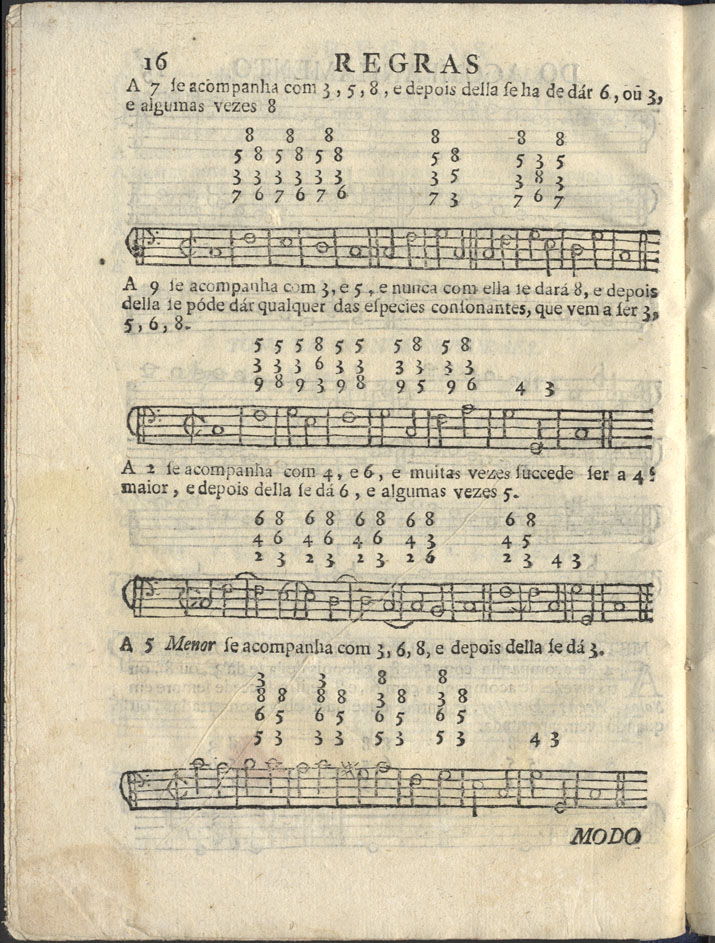 16 REGRAS
A 7 ſe acompanha com 3, 5, 8, e depois della ſe ha de dár 6, oũ 3,
e algumas vezes 8
8 8 8 8 8 8
5 8 5 8 5 8 5 8 5 3 5
3 3 3 3 3 3 3 5 3 8 3
7 6 7 6 7 6 7 3 7 6 7
A 9 ſe acompanha com 3, e 5, e nunca com ella ſe dará 8, e depois
della ſe póde dár qualquer das eſpecies conſonantes, que vem a ſer 3,
5, 6, 8.
5 5 5 8 5 5 5 8 5 8
3 3 3 6 3 3 3 3 3 3
9 8 9 3 9 8 9 5 9 6 4 3
A 2 ſe acompanha com 4, e 6, e muitas vezes ſuccede ſer a 4ª
maior, e depois della ſe dá 6, e algumas vezes 5.
6 8 6 8 6 8 6 8 6 8
4 6 4 6 4 6 4 3 4 5
2 3 2 3 2 3 2 6 2 3 4 3
A 5 Menor ſe acompanha com 3, 6, 8, e depois della ſe dá 3.
3 3 8 8
8 8 8 8 3 8 3 8
6 5 6 5 6 5 6 5
5 3 3 3 5 3 5 3 4 3
MODO